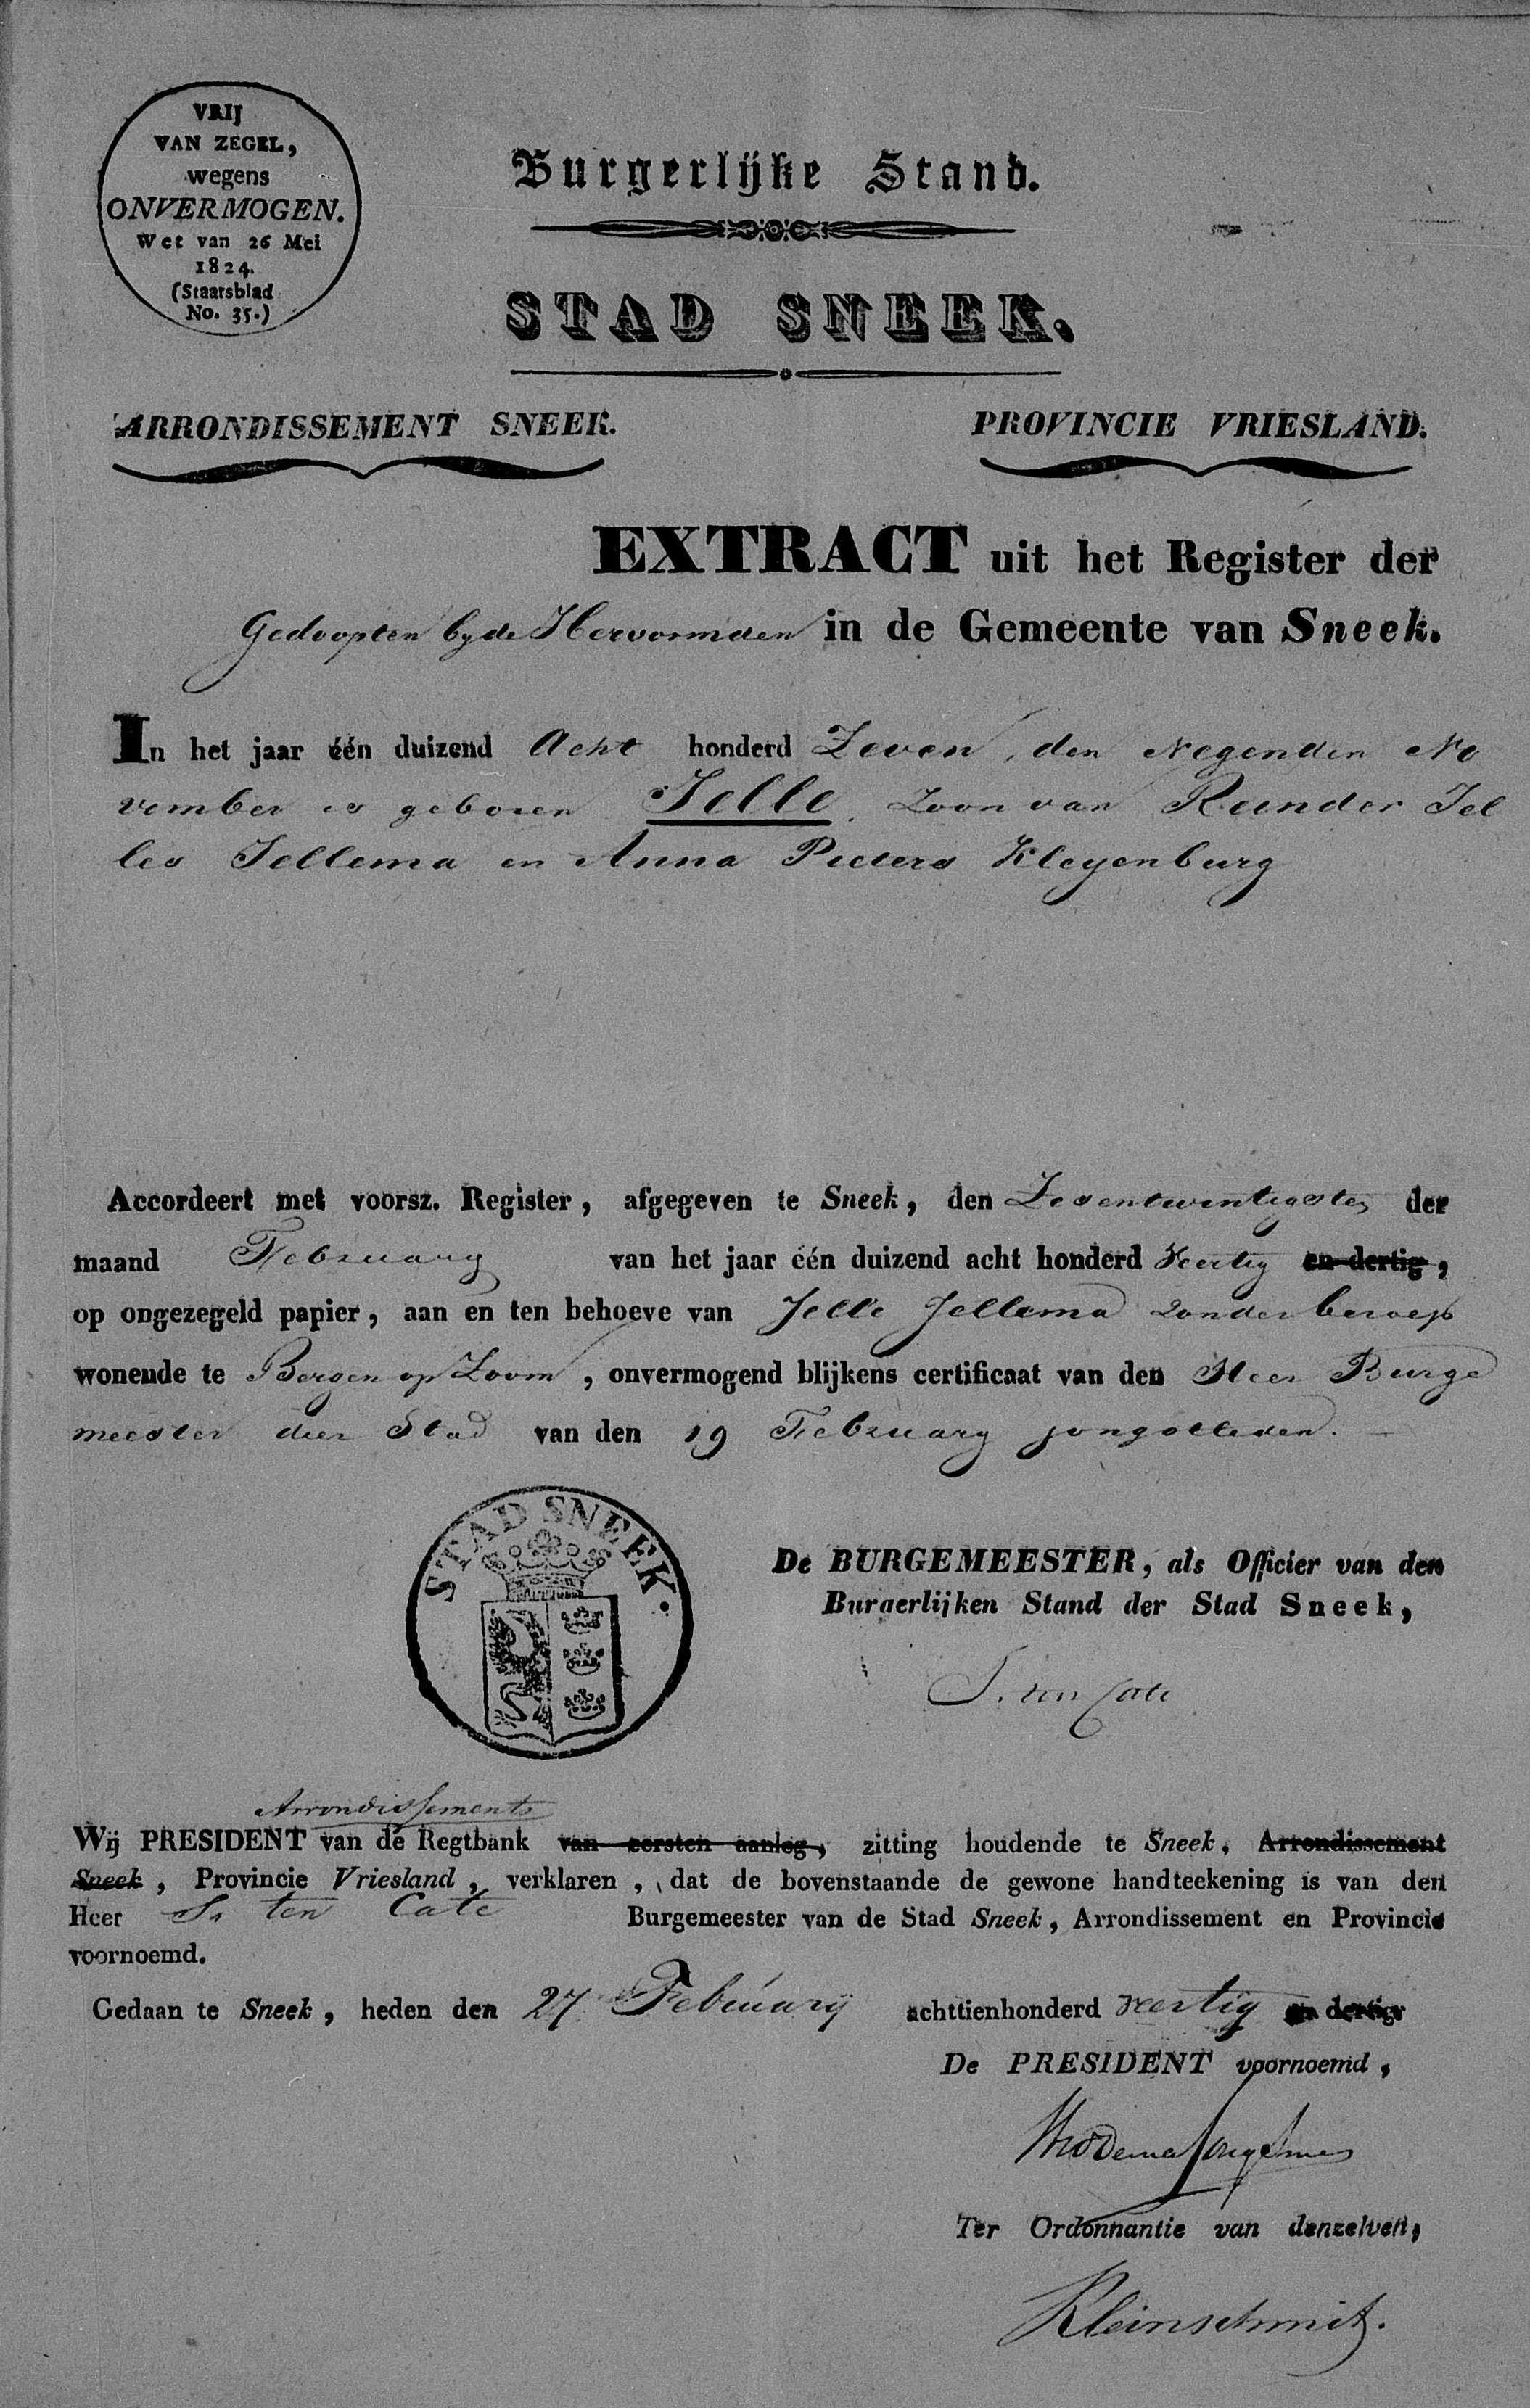 VRIJ
VAN ZEGEL,
wegens
ONVERMOGEN.
Wet van 26 Mei
1824.
(Staatsblad
No. 35.)
Burgerlijke Stand.
STAD SNEEK.
ARRONDISSEMENT SNEEK.
PROVINCIE VRIESLAND.
EXTRACT uit het Register der
Gedoopten by de Hervormden in de Gemeente van Sneek.
In het jaar één duizend Acht honderd Zeven, den Negenden No
vember is geboren Jelle. Zoon van Reinder Jel
les Jellema en Anna Pieters Kleyenburg
Accordeert met voorsz. Register, afgegeven te Sneek, den Zesentwintigsten der
maand February van het jaar één duizend acht honderd Veertig en dertig,
op ongezegeld papier, aan en ten behoeve van Jelle Jellema zonder beroep
wonende te Bergen op Zoom, onvermogend blijkens certificaat van den Heer Burge
meester dier Stad van den 19 February jongstleden.
STAD SNEEK.
De BURGEMEESTER, als Officier van den
Burgerlijken Stand der Stad Sneek,
S. ten Cate
Arrondissements
Wij PRESIDENT van de Regtbank van eersten aanleg, zitting houdende te Sneek, Arrondissement
Sneek, Provincie Vriesland, verklaren, dat de bovenstaande de gewone handteekening is van den
Heer S. ten Cate Burgemeester van de Stad Sneek, Arrondissement en Provincie
voornoemd.
Gedaan te Sneek, heden den 27 February achttienhonderd veertig en dertig
De PRESIDENT voornoemd,
Ter Ordonnantie van denzelven,
Kleinschmit.